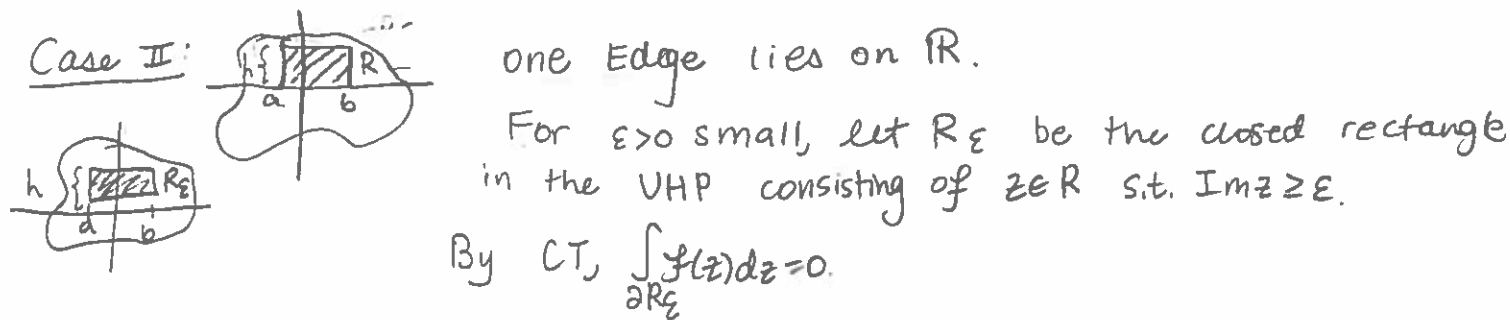 Case II: one Edge lies on ℝ.
h{ R
a b
For ε>0 small, let Rε be the closed rectangle
h { Rε
in the UHP consisting of z∈R s.t. Imz≥ε.
a b
By CT, ∫∂Rε f(z)dz=0.